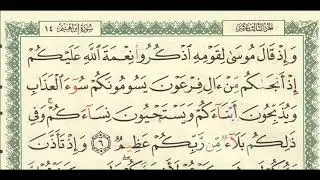 الجزء الثالث عشر سورة إبراهيم ١٤
وَإِذْ قَالَ مُوسَىٰ لِقَوْمِهِ ٱذْكُرُوا۟ نِعْمَةَ ٱللَّهِ عَلَيْكُمْ
إِذْ أَنجَىٰكُم مِّنْ ءَالِ فِرْعَوْنَ يَسُومُونَكُمْ سُوٓءَ ٱلْعَذَابِ
وَيُذَبِّحُونَ أَبْنَآءَكُمْ وَيَسْتَحْيُونَ نِسَآءَكُمْ ۚ وَفِى
ذَٰلِكُم بَلَآءٌ مِّن رَّبِّكُمْ عَظِيمٌ ٦ وَإِذْ تَأَذَّنَ